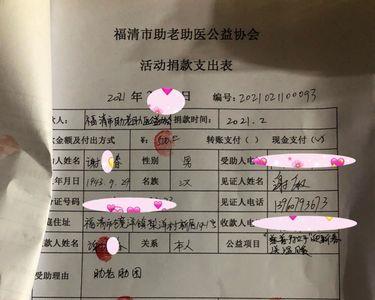 福清市助老助医公益协会
活动捐款支出表
2021年 日 编号:2021021100093
款人: 福清市助老助医公益协会 捐款时间: 2021.2
款金额及付出方式 ¥: 转账支付( ) 现金支付(√)
助人姓名 谢 春 性别 男 受助人电
年月日 1943.9.29 名族 汉 见证人姓名 谢
份证号码 见证人电话 13960793673
庭住址 福清市 收款人电
款人姓名 谢 关系 本人 公益项目
受助理由 助老助困